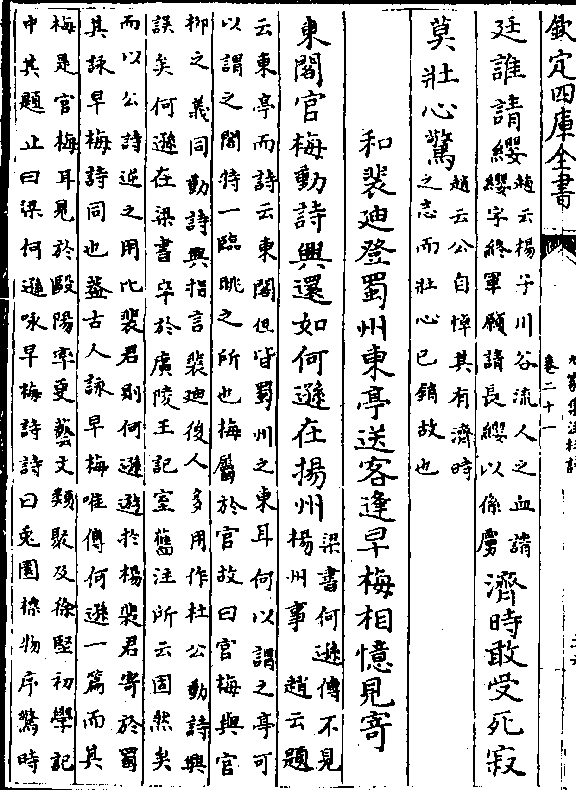 欽定四庫全書
卷二十一
廷誰請纓趙云楊子川谷流人之血請
纓字終軍願請長纓以係虜濟時敢受死寂
莫壯心驚趙云公自悼其有濟時
之志而壯心已銷故也
和裴迪登蜀州東亭送客逢早梅相憶見寄
東閣官梅動詩興還如何遜在揚州梁書何遜傳不見
揚州事 趙云題
云東亭而詩云東閣但皆蜀州之東耳何以謂之亭可
以謂之閣特一臨眺之所也梅屬於官故曰官梅與官
柳之義同動詩興指言裴迪後人多用作杜公動詩興
誤矣何遜在梁書卒於廬陵王記室舊注所云固然矣
而以公詩逆之用比裴君則何遜遊於楊裴君寄於蜀
其詠早梅詩同也葢古人詠早梅唯傳何遜一篇而其
梅是官梅耳見於歐陽率更藝文類聚及徐堅初學記
中其題止曰梁何遜咏早梅詩詩曰兎園標物序驚時